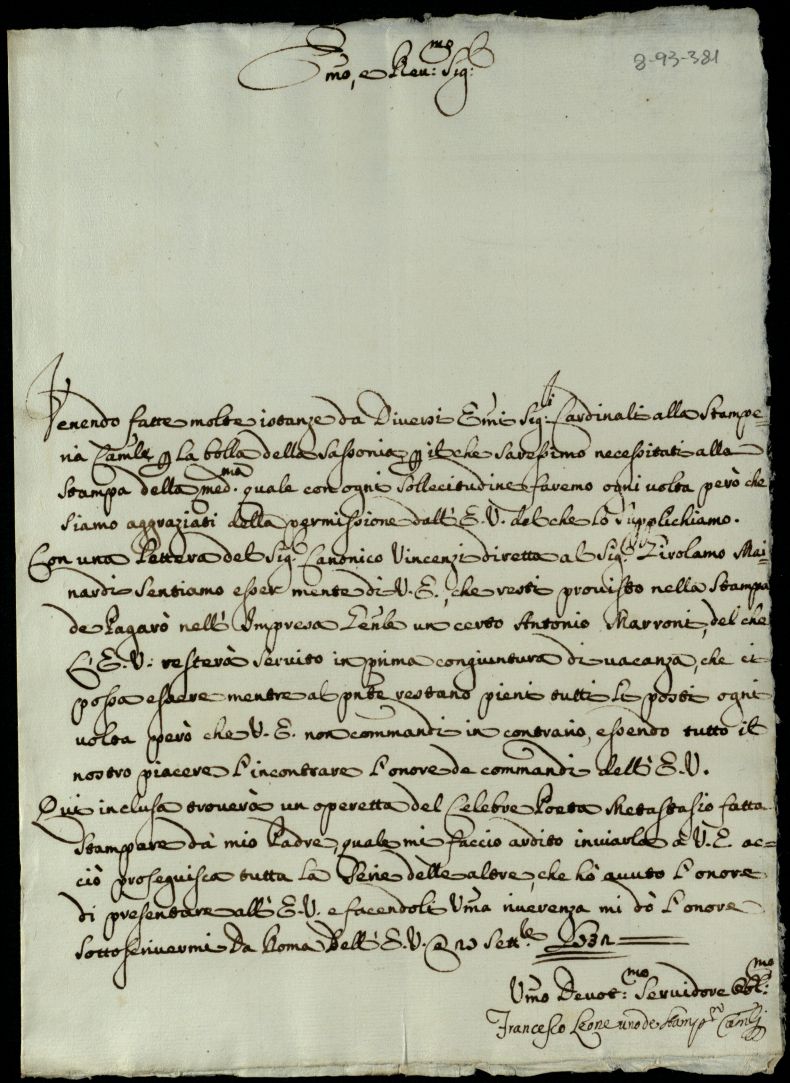 8-93-381
Emo, e Reu:mo Sig:
Venendo fatte molte istanze da Diversi Emi Sig:ri Cardinali alla Stampe=
ria Camle p La bolla della Sassonia p il che saressimo necessitati alla
Stampa della med.ma quale con ogni sollecitudine faremo ogni volta però che
siamo aggraziati della permissione dall' E. V. del che lo supplichiamo.
Con una Lettera del Sig.r Canonico Vincenzi diretta al Sig.r Girolamo Mai=
nardi sentiamo esser mente di V. E., che resti provisto nella Stampa
de Pagarò nell' Impresa un certo Antonio Marroni, del che
L' E. V: resterà servito in prima congiuntura di vacanza, che ci
possa essere mentre al pnte restano pieni tutti li posti ogni
volta però che V. E. non commandi in contrario, essendo tutto il
nostro piacere l'incontrare l'onore de commandi dell' E. V.
Qui inclusa trouerà un operetta del Celebre Poeta Metastasio fatta
Stampare da mio Padre, quale mi faccio ardito inviarla à V. E. ac=
ciò proseguisca tutta la serie delle altre, che hò auuto l'onore
di presentare all' E. V. e facendoli Uma riverenza mi dò l'onore
sottoscrivermi Da Roma Dell' E. V. Sett.le
Umo Devot:mo Servidore Obl:mo
Francesco Leone uno de Stamp.ri Camli